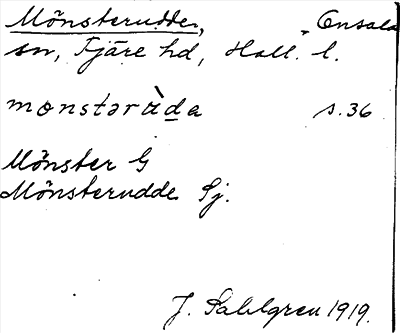 Mönsterudde, Onsala
sn, Fjäre hd, Hall. l.
mønstərùda s. 36
Mönster G
Mönsterudde Sj.
J. Sahlgren 1919.